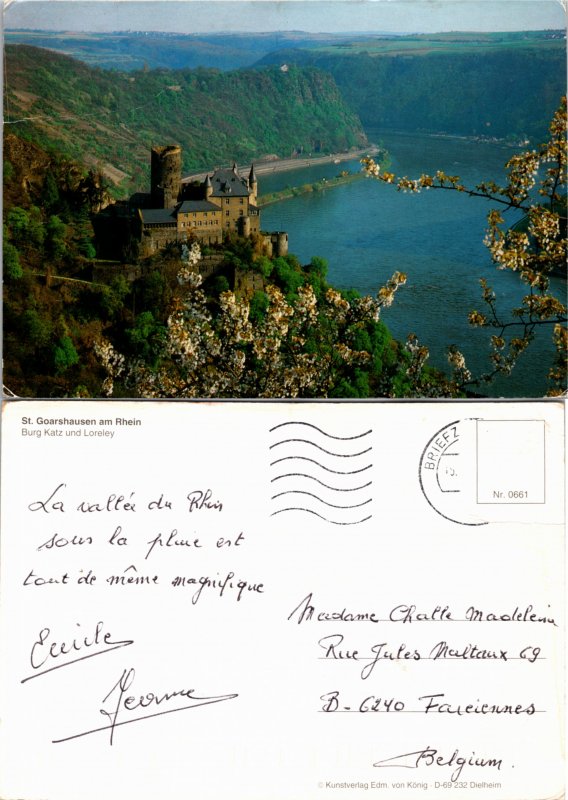 St. Goarshausen am Rhein
Burg Katz und Loreley
BRIEFZ
Nr. 0661
La vallée du Rhin
sous la pluie est
tout de même magnifique
Emile
Jeanne
Madame Challe Madeleine
Rue Jules Maltaux 69
B-6240 Farciennes
Belgium.
© Kunstverlag Edm. von König · D-69 232 Dielheim